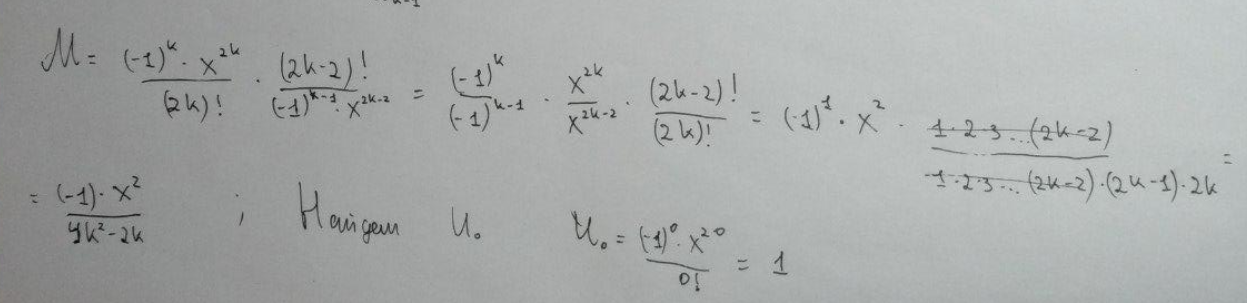 k-1
M = \frac{(-1)^k \cdot x^{2k}}{(2k)!} \cdot \frac{(2k-2)!}{(-1)^{k-1} \cdot x^{2k-2}} = \frac{(-1)^k}{(-1)^{k-1}} \cdot \frac{x^{2k}}{x^{2k-2}} \cdot \frac{(2k-2)!}{(2k)!} = (-1)^1 \cdot x^2 \cdot \frac{1 \cdot 2 \cdot 3 ... (2k-2)}{1 \cdot 2 \cdot 3 ... (2k-2) \cdot (2k-1) \cdot 2k} =
= \frac{(-1) \cdot x^2}{4k^2-2k} ; Найдем U_0 U_0 = \frac{(-1)^0 \cdot x^{2 \cdot 0}}{0!} = 1